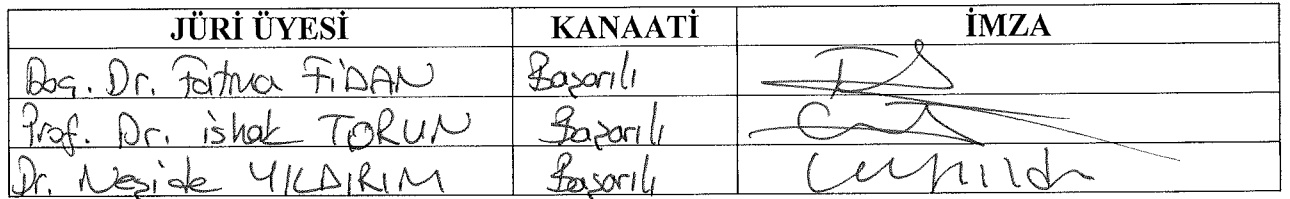 JÜRİ ÜYESİ KANAATİ İMZA
Doç. Dr. Fatma FİDAN Başarılı
Prof. Dr. İshak TORUN Başarılı
Dr. Neşide YILDIRIM Başarılı